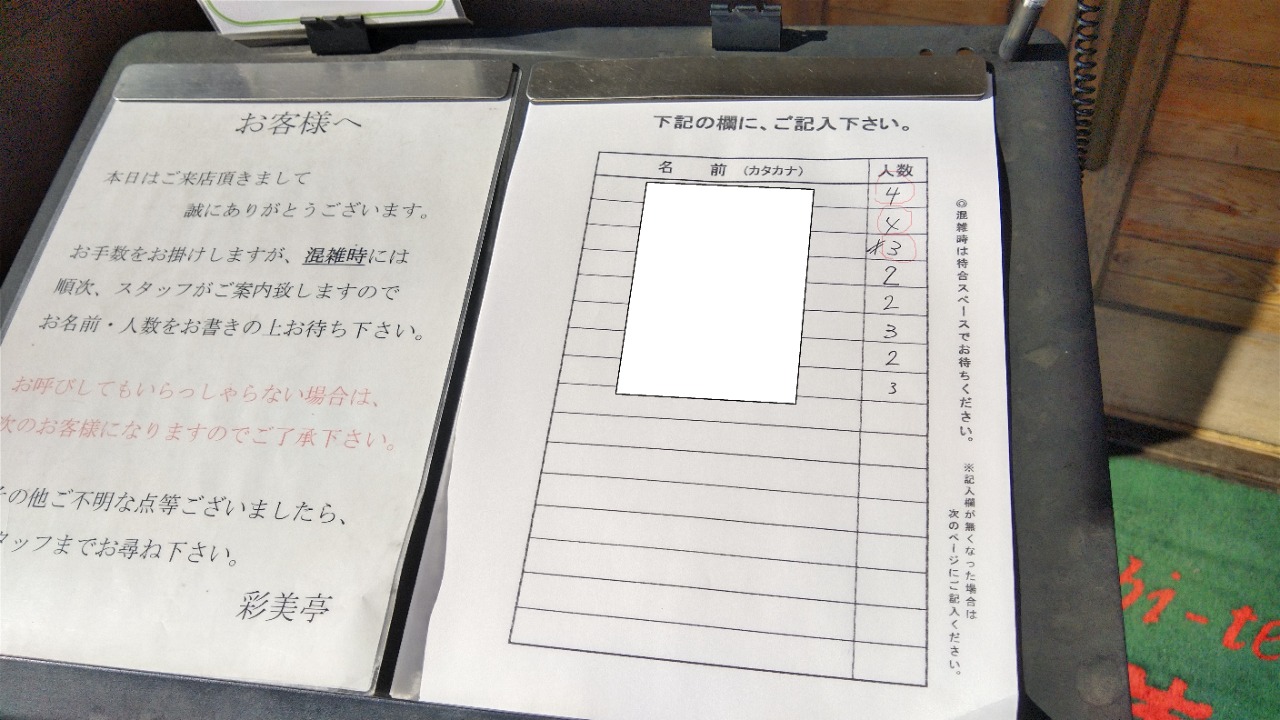 お客様へ
本日はご来店頂きまして
誠にありがとうございます。
お手数をお掛けしますが、混雑時には
順次、スタッフがご案内致しますので
お名前・人数をお書きの上お待ち下さい。
お呼びしてもいらっしゃらない場合は、
次のお客様になりますのでご了承下さい。
その他ご不明な点等ございましたら、
タッフまでお尋ね下さい。
彩美亭
下記の欄に、ご記入下さい。
名 前 (カタカナ) 人数
4
4
3
2
2
3
2
3
◎混雑時は待合スペースでお待ちください。
※記入欄が無くなった場合は
次のページにご記入ください。
bi-te